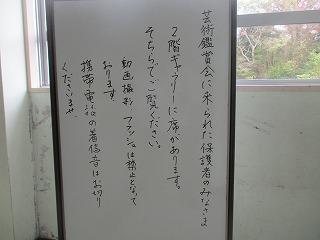 芸術鑑賞会に来られた保護者のみなさま
2階ギャラリーに席があります。
そちらでご覧ください。
動画撮影 フラッシュは禁止となって
おります。
携帯電話の着信音はお切り
くださいませ。